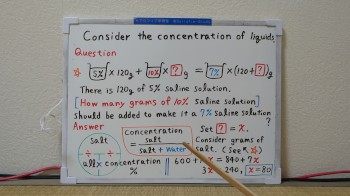 Consider the concentration of liquids
Question
☆ 5% × 120g + 10% × ? g = 7% × (120+?)g
There is 120g of 5% saline solution.
[How many grams of 10% saline solution]
should be added to make it a 7% saline solution?
Answer
Concentration = salt / salt + Water
Set ? = x.
Consider grams of
salt. (See ☆)
salt
÷ ÷
all × concentration
%
600 + = 840 + 7x
3x = 240, x = 80